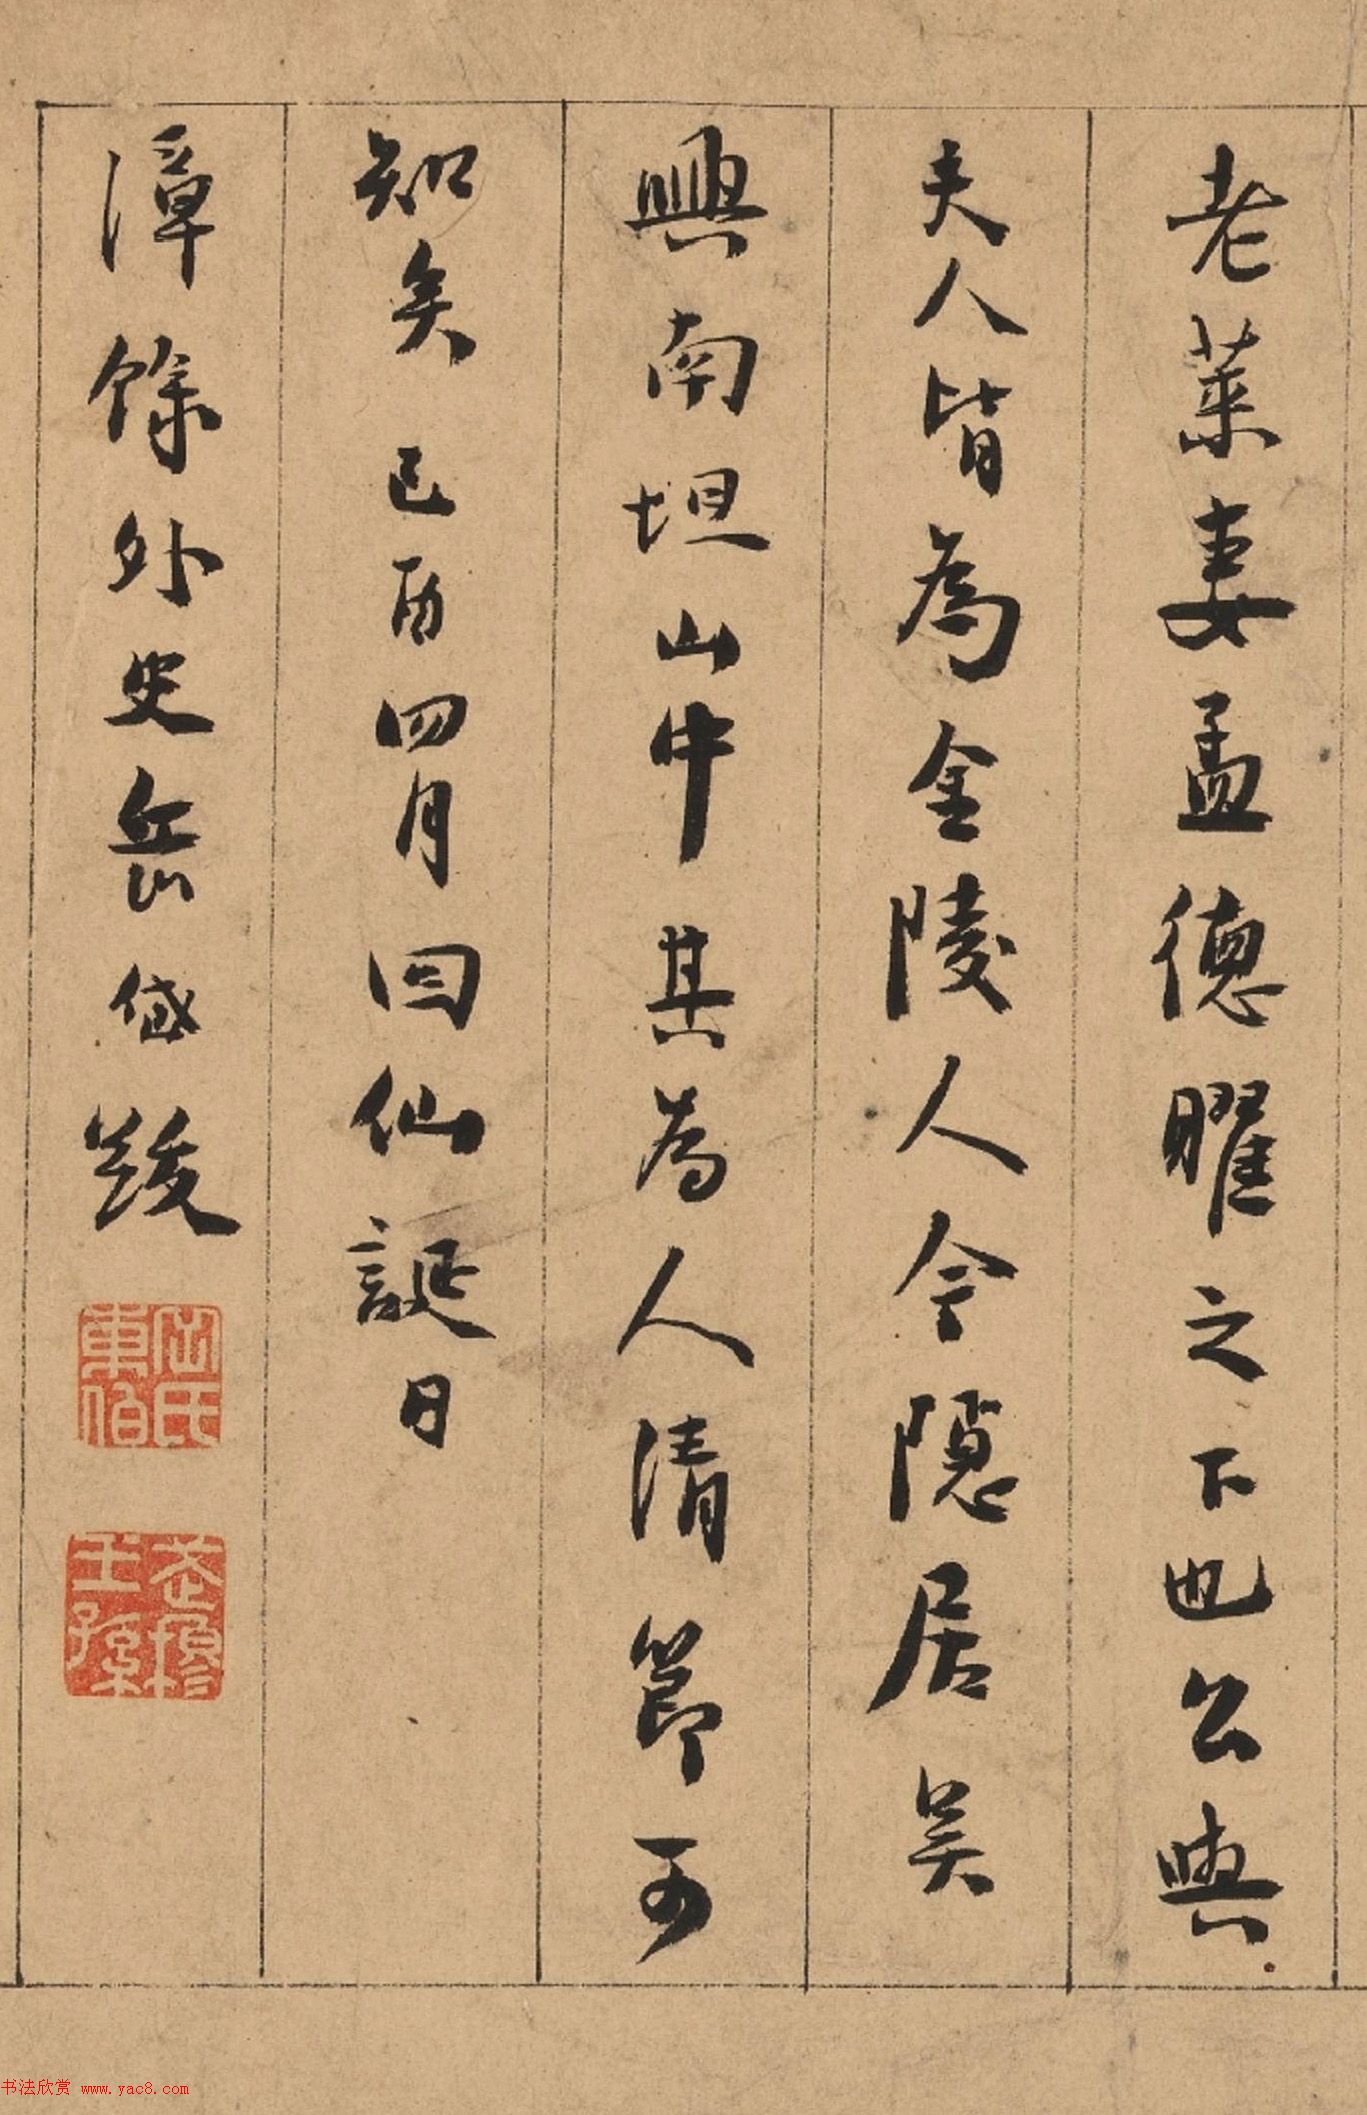 老萊妻孟德曜之下也公與
夫人皆為金陵人今隱居吳
興南坦山中其為人清節可
知矣 己酉四月回仙誕日
漳餘外史岳岱跋
岱氏東伯
王孫
书法欣赏 www.yac8.com